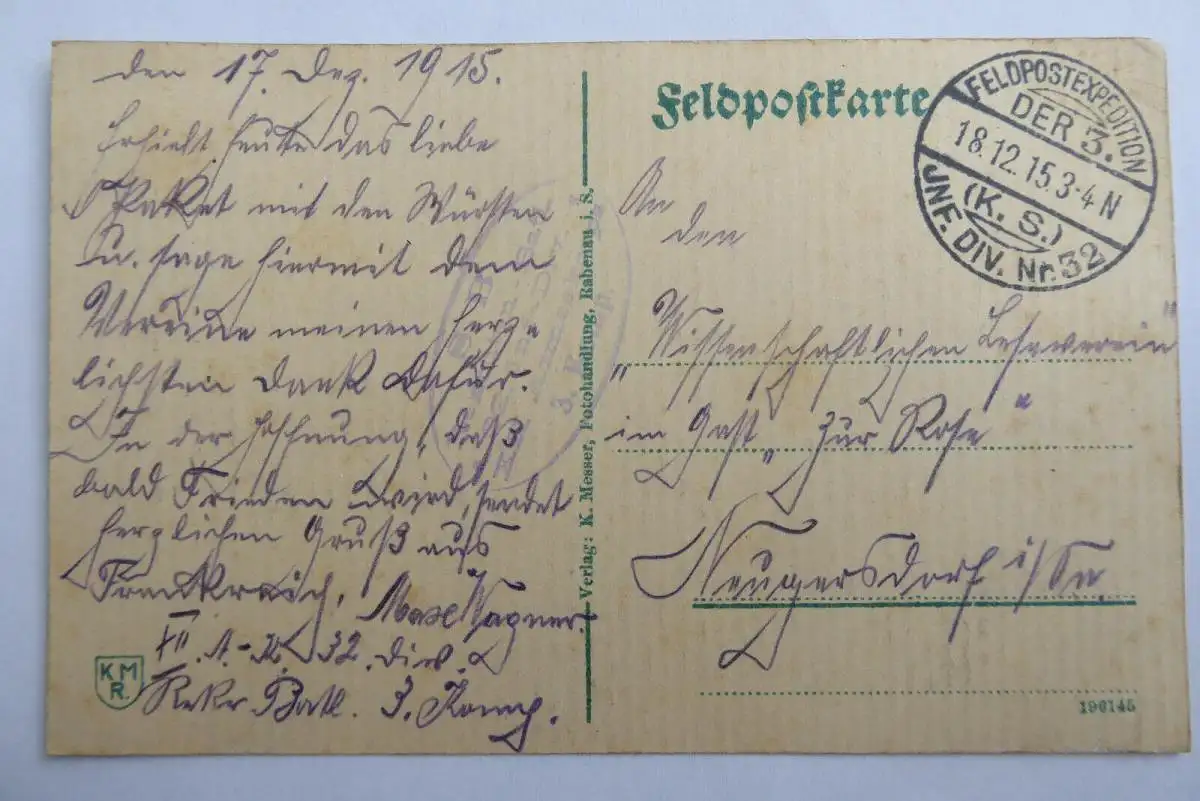 den 17. Dez. 1915.
Erhielt heute das liebe
Paket mit den Würsten
u. sage hiermit dem
Vereine meinen herz-
lichsten Dank dafür.
In der Hoffnung, daß
bald Frieden wird, sendet
herzlichen Gruß aus
Frankreich, Max Wagner.
XII. A.-K. 32. Div.
Rekr. Batl. 3. Komp.
KM
R.
Verlag: K. Messer, Fotohandlung, Rabenau i. S.
Feldpostkarte
FELDPOSTEXPEDITION
DER 3.
18.12.15.3-4 N
(K. S.)
JNF. DIV. Nr. 32
An
den
„Wissenschaftlichen Leseverein"
im Gast „zur Rose"
Neugersdorf i/Sa
196145
3. Komp.